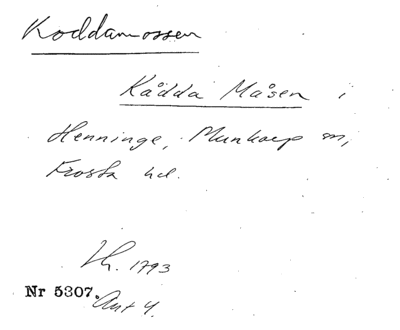 Koddamossen
Kådda Måsen i
Henninge, Munkarp sn,
Frosta hd.
Lh. 1793
Nr 5307.
Akt 4.